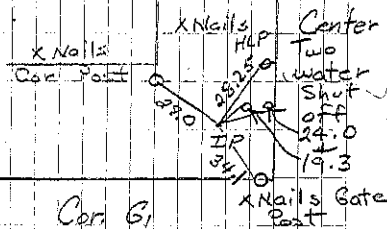 X Nails
Cor. Post
X Nails
HLP
Center
Two
water
Shut
off
24.0
19.3
28.25
29.0
IP
34.1
X Nails Gate
Post
Cor. G,